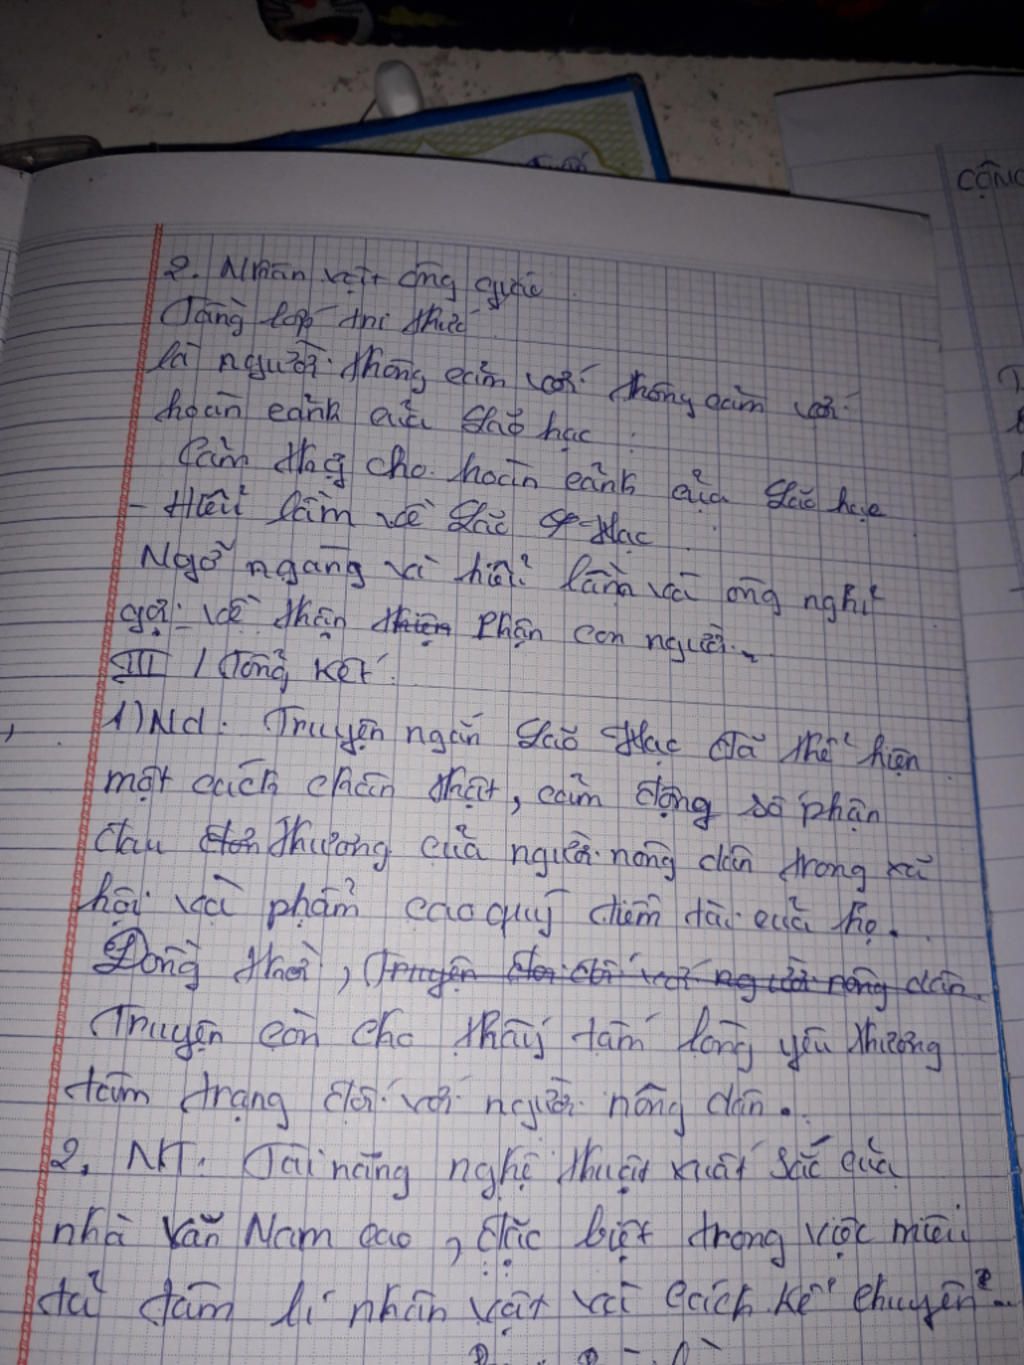 CỘNG
2. Nhân vật ông giáo
Tầng lớp tri thức
là người thông cảm với thông cảm với
hoàn cảnh của Lão hạc :
Cảm thấy cho hoàn cảnh của Lão hạc
- Hiểu lầm về Lão Hạc
Ngỡ ngàng vì hiểu lầm và ông nghĩ
gợi về thận thiện phận con người.
III / Tổng kết.
1) Nd. Truyện ngắn Lão Hạc đã thể hiện
một cách chân thật, cảm động số phận
đau thương của người nông dân trong xã
hội và phẩm cao quý tiềm tài của họ.
Đồng thời, Truyện đối với người nông dân
Truyện còn cho thấy tấm lòng yêu thương
tâm trạng đối với người nông dân.
2. NT. Tài năng nghệ thuật xuất sắc của
nhà văn Nam cao, đặc biệt trong việc miêu
tả tâm lí nhân vật và cách kể chuyện.